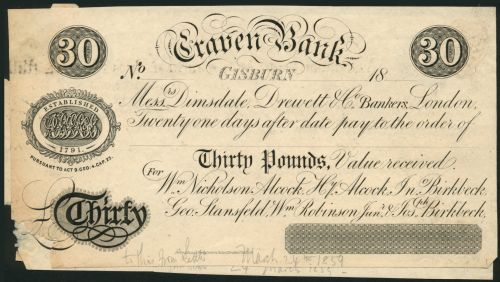 30 Craven Bank 30
No. GISBURN 18
Messrs. Dimsdale, Drewett & Co. Bankers, London,
Twenty one days after date pay to the order of
ESTABLISHED
1791.
PURSUANT TO ACT 9. GEO. 4. CAP. 23.
Thirty Pounds, Value received.
For Wm. Nicholson Alcock, H.J. Alcock, Jno. Birkbeck,
Geo. Stansfeld, Wm. Robinson Junr. & Josph. Birkbeck.
£ Thirty
March 24th 1859
24 March 1859